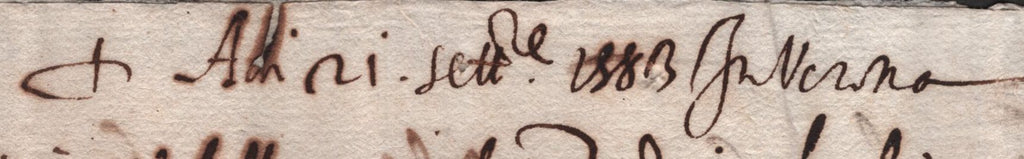 + Adi 21. sett.re 1583 In Verona